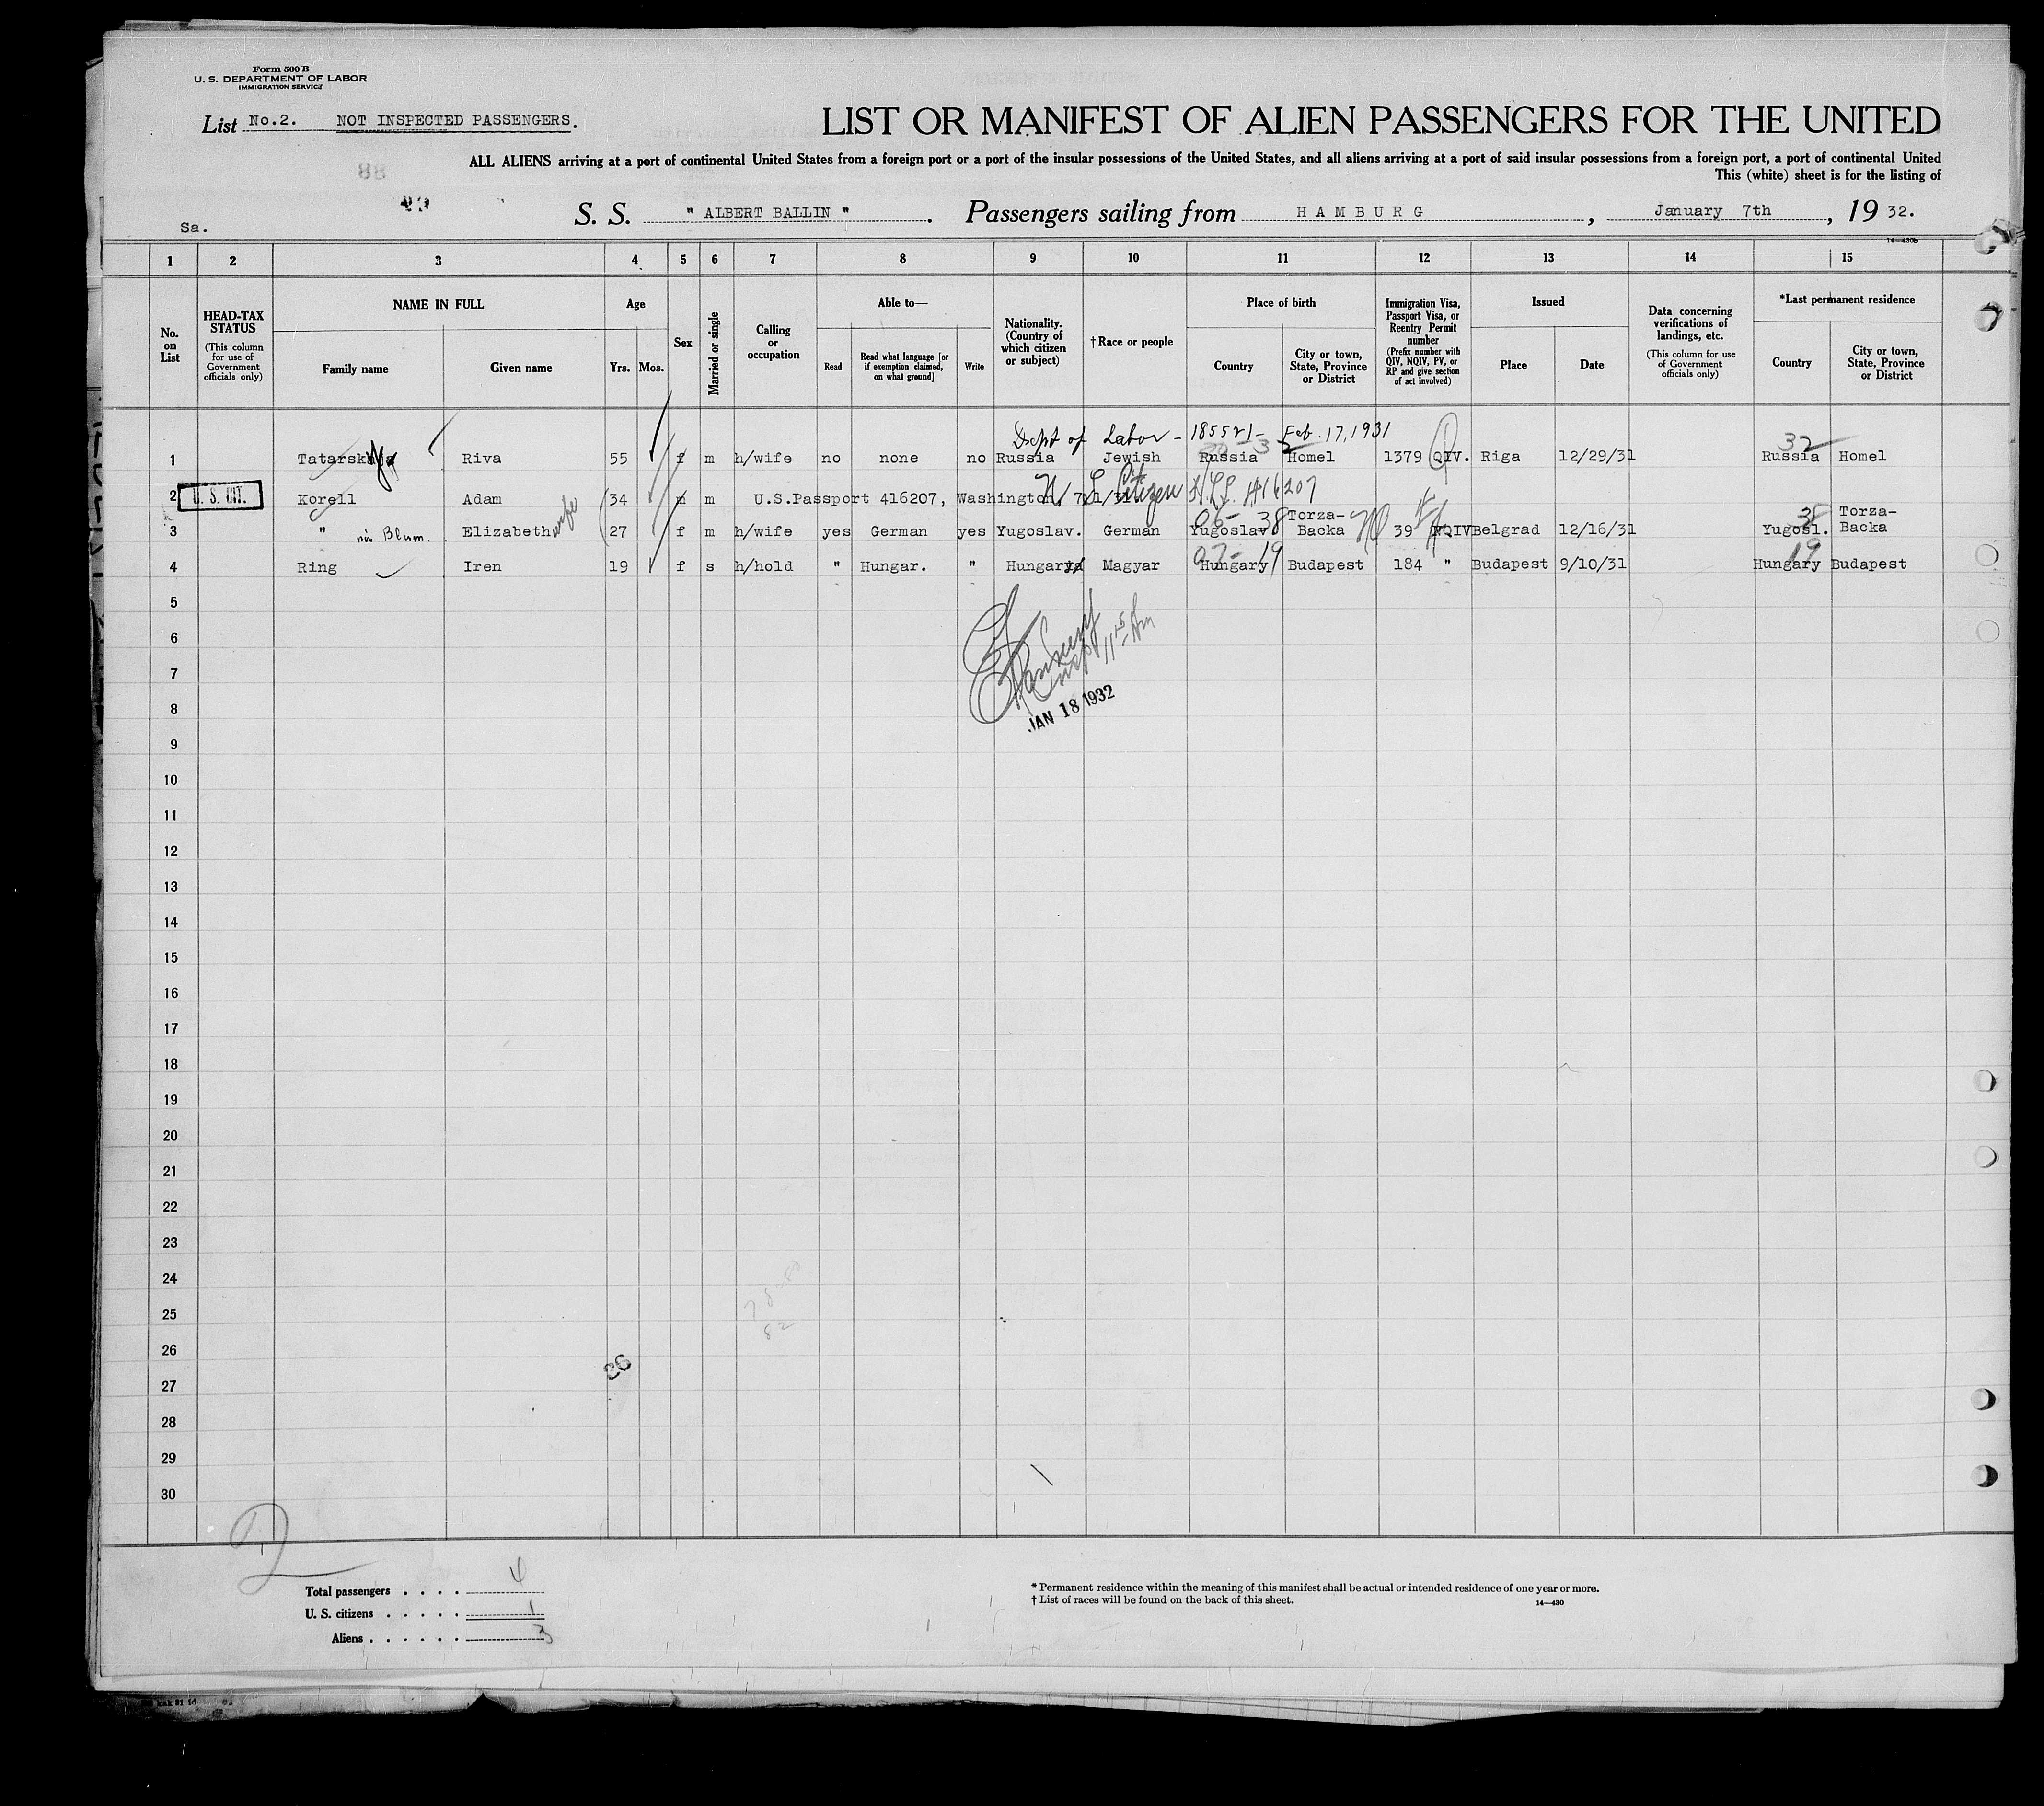 Form 500 B
U. S. DEPARTMENT OF LABOR
IMMIGRATION SERVICE
List No.2. NOT INSPECTED PASSENGERS.
LIST OR MANIFEST OF ALIEN PASSENGERS FOR THE UNITED
ALL ALIENS arriving at a port of continental United States from a foreign port or a port of the insular possessions of the United States, and all aliens arriving at a port of said insular possessions from a foreign port, a port of continental United
This (white) sheet is for the listing of
88
Sa.
S. S. " ALBERT BALLIN ". Passengers sailing from HAMBURG, January 7th, 19 32.
14—430b
1 2 3 4 5 6 7 8 9 10 11 12 13 14 15
No. on List
HEAD-TAX STATUS (This column for use of Government officials only)
NAME IN FULL
Family name
Given name
Age
Yrs. Mos.
Sex
Married or single
Calling or occupation
Able to—
Read
Read what language [or if exemption claimed, on what ground]
Write
Nationality. (Country of which citizen or subject)
†Race or people
Place of birth
Country
City or town, State, Province or District
Immigration Visa, Passport Visa, or Reentry Permit number (Prefix number with QIV, NQIV, PV, or RP and give section of act involved)
Issued
Place
Date
Data concerning verifications of landings, etc. (This column for use of Government officials only)
*Last permanent residence
Country
City or town, State, Province or District
Dept of Labor - 185521 - Feb. 17, 1931
32
1 Tatarskaja Riva 55 f m h/wife no none no Russia Jewish Russia Homel 1379 QIV. Riga 12/29/31 Russia Homel
2 U. S. CIT. Korell Adam 34 m m U.S.Passport 416207, Washington, 7/1/31 U S Citizen 416207
3 " née Blum. Elizabeth wife 27 f m h/wife yes German yes Yugoslav. German Yugoslav Torza-Backa 39 NQIV Belgrad 12/16/31 Yugosl. Torza-Backa
06- 38 38
4 Ring Iren 19 f s h/hold " Hungar. " Hungary Magyar Hungary Budapest 184 " Budapest 9/10/31 Hungary Budapest
07- 19 19
5
6
7
8
Insp 11 15 Am
JAN 18 1932
9
10
11
12
13
14
15
16
17
18
19
20
21
22
23
24
25
26
27
28
29
30
Total passengers . . . . 4
U. S. citizens . . . . . 1
Aliens . . . . . . 3
* Permanent residence within the meaning of this manifest shall be actual or intended residence of one year or more.
† List of races will be found on the back of this sheet.
14—430